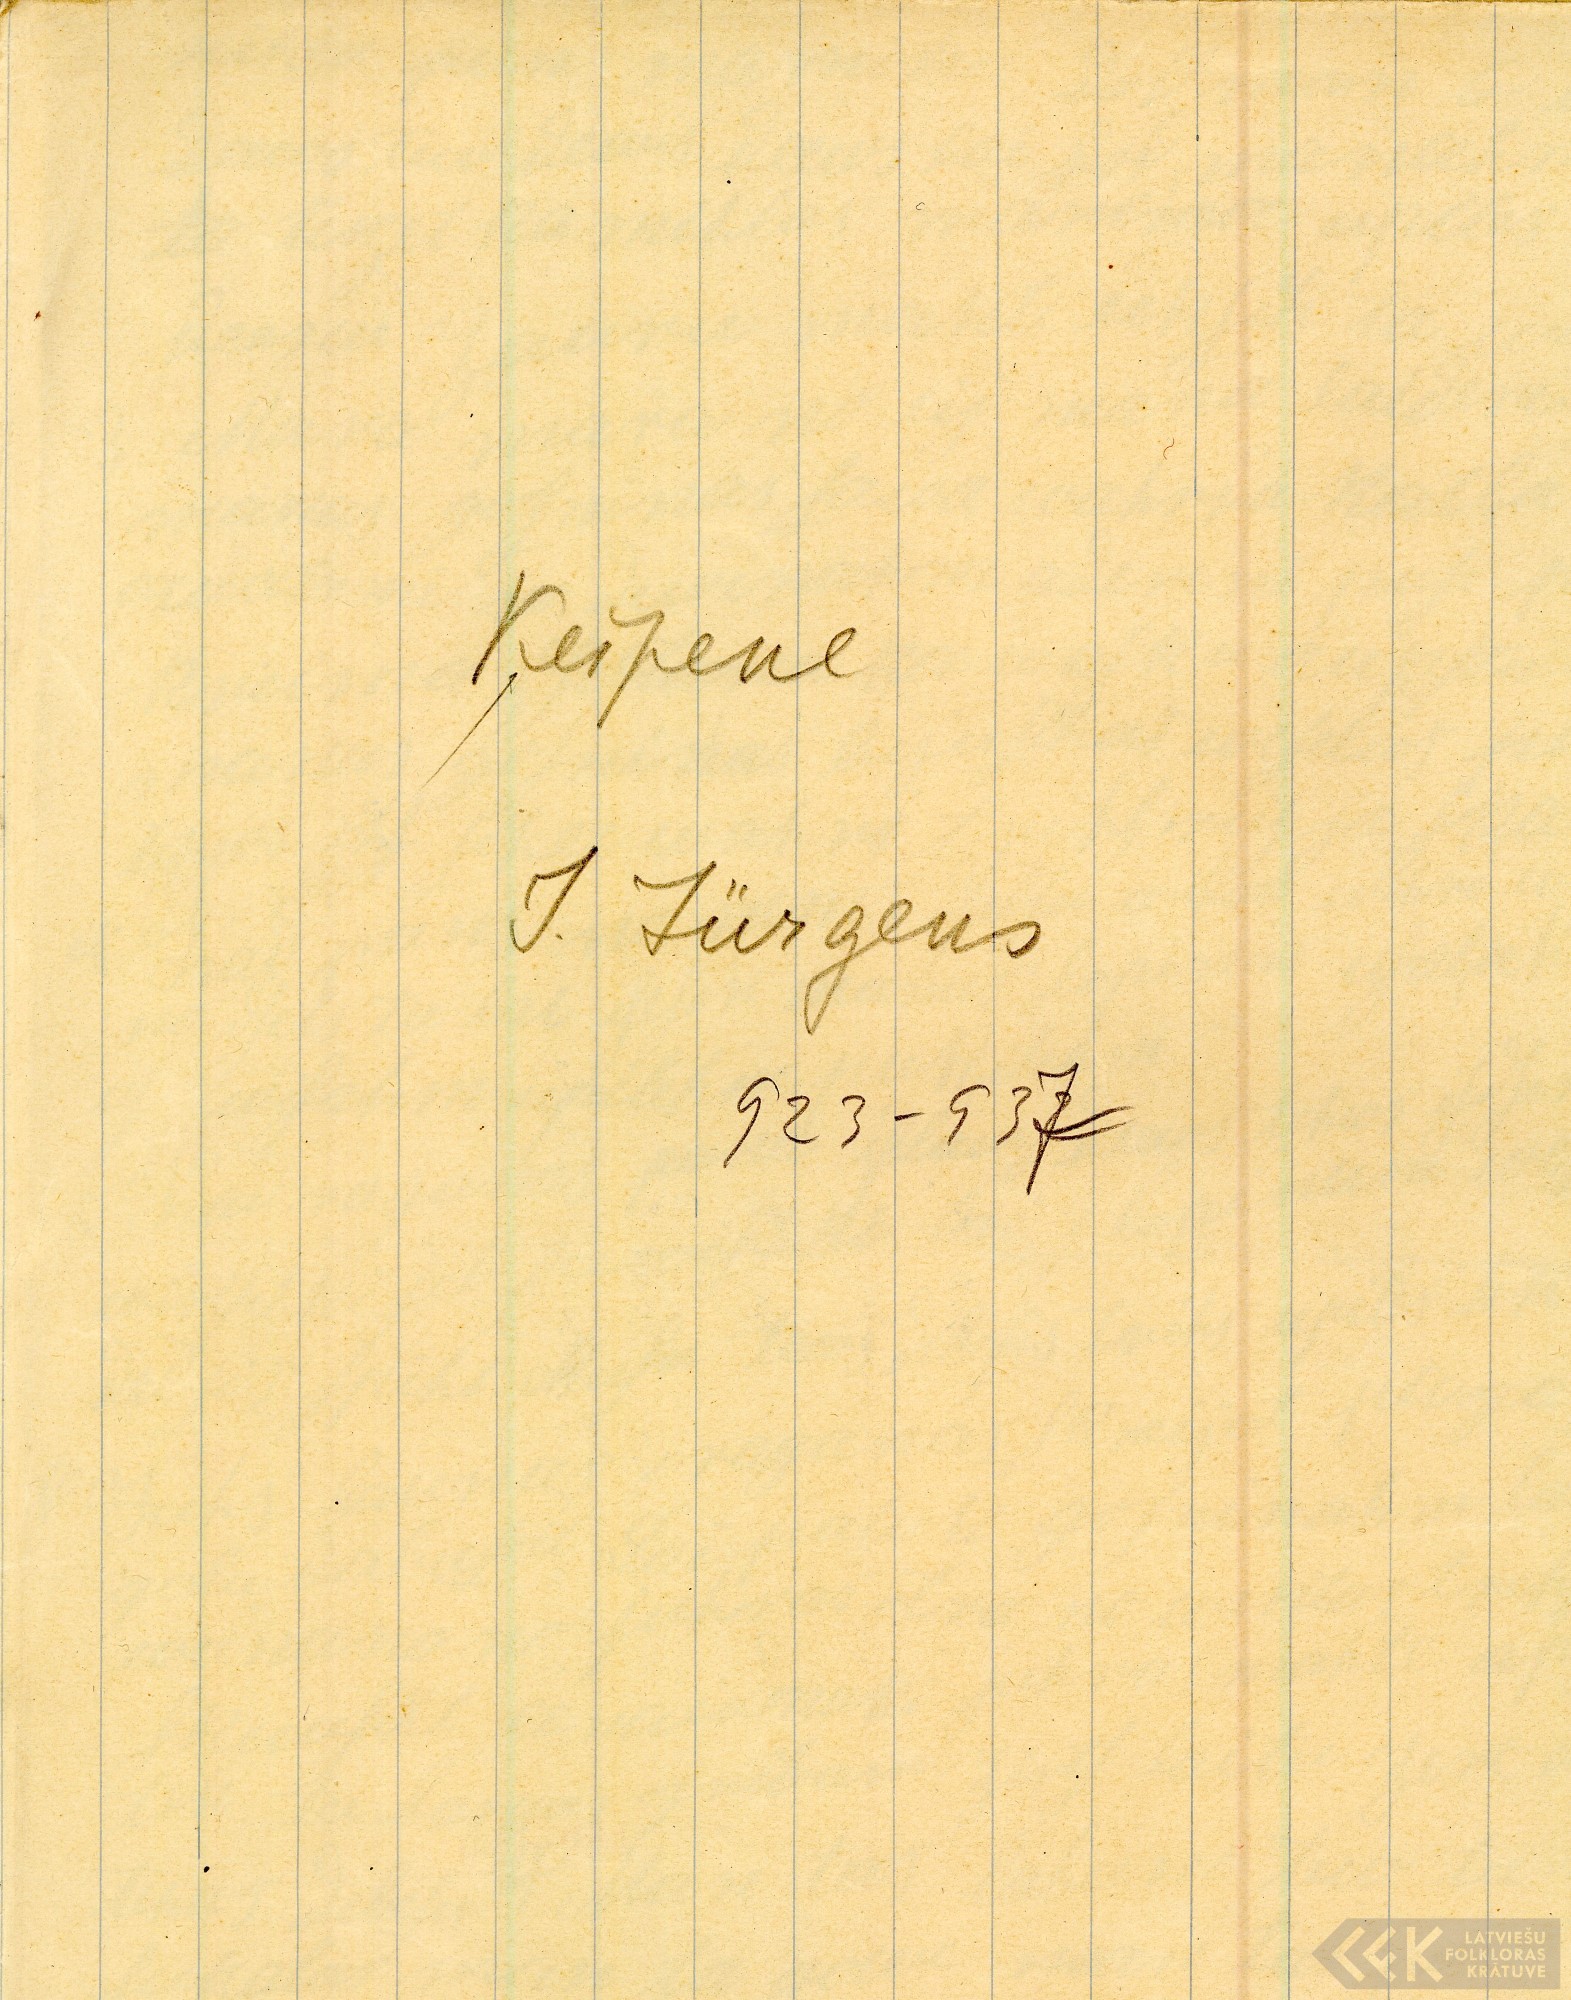 Ķeipene
J. Jürgens
923-937
LATVIEŠU
FOLKLORAS
KRĀTUVE